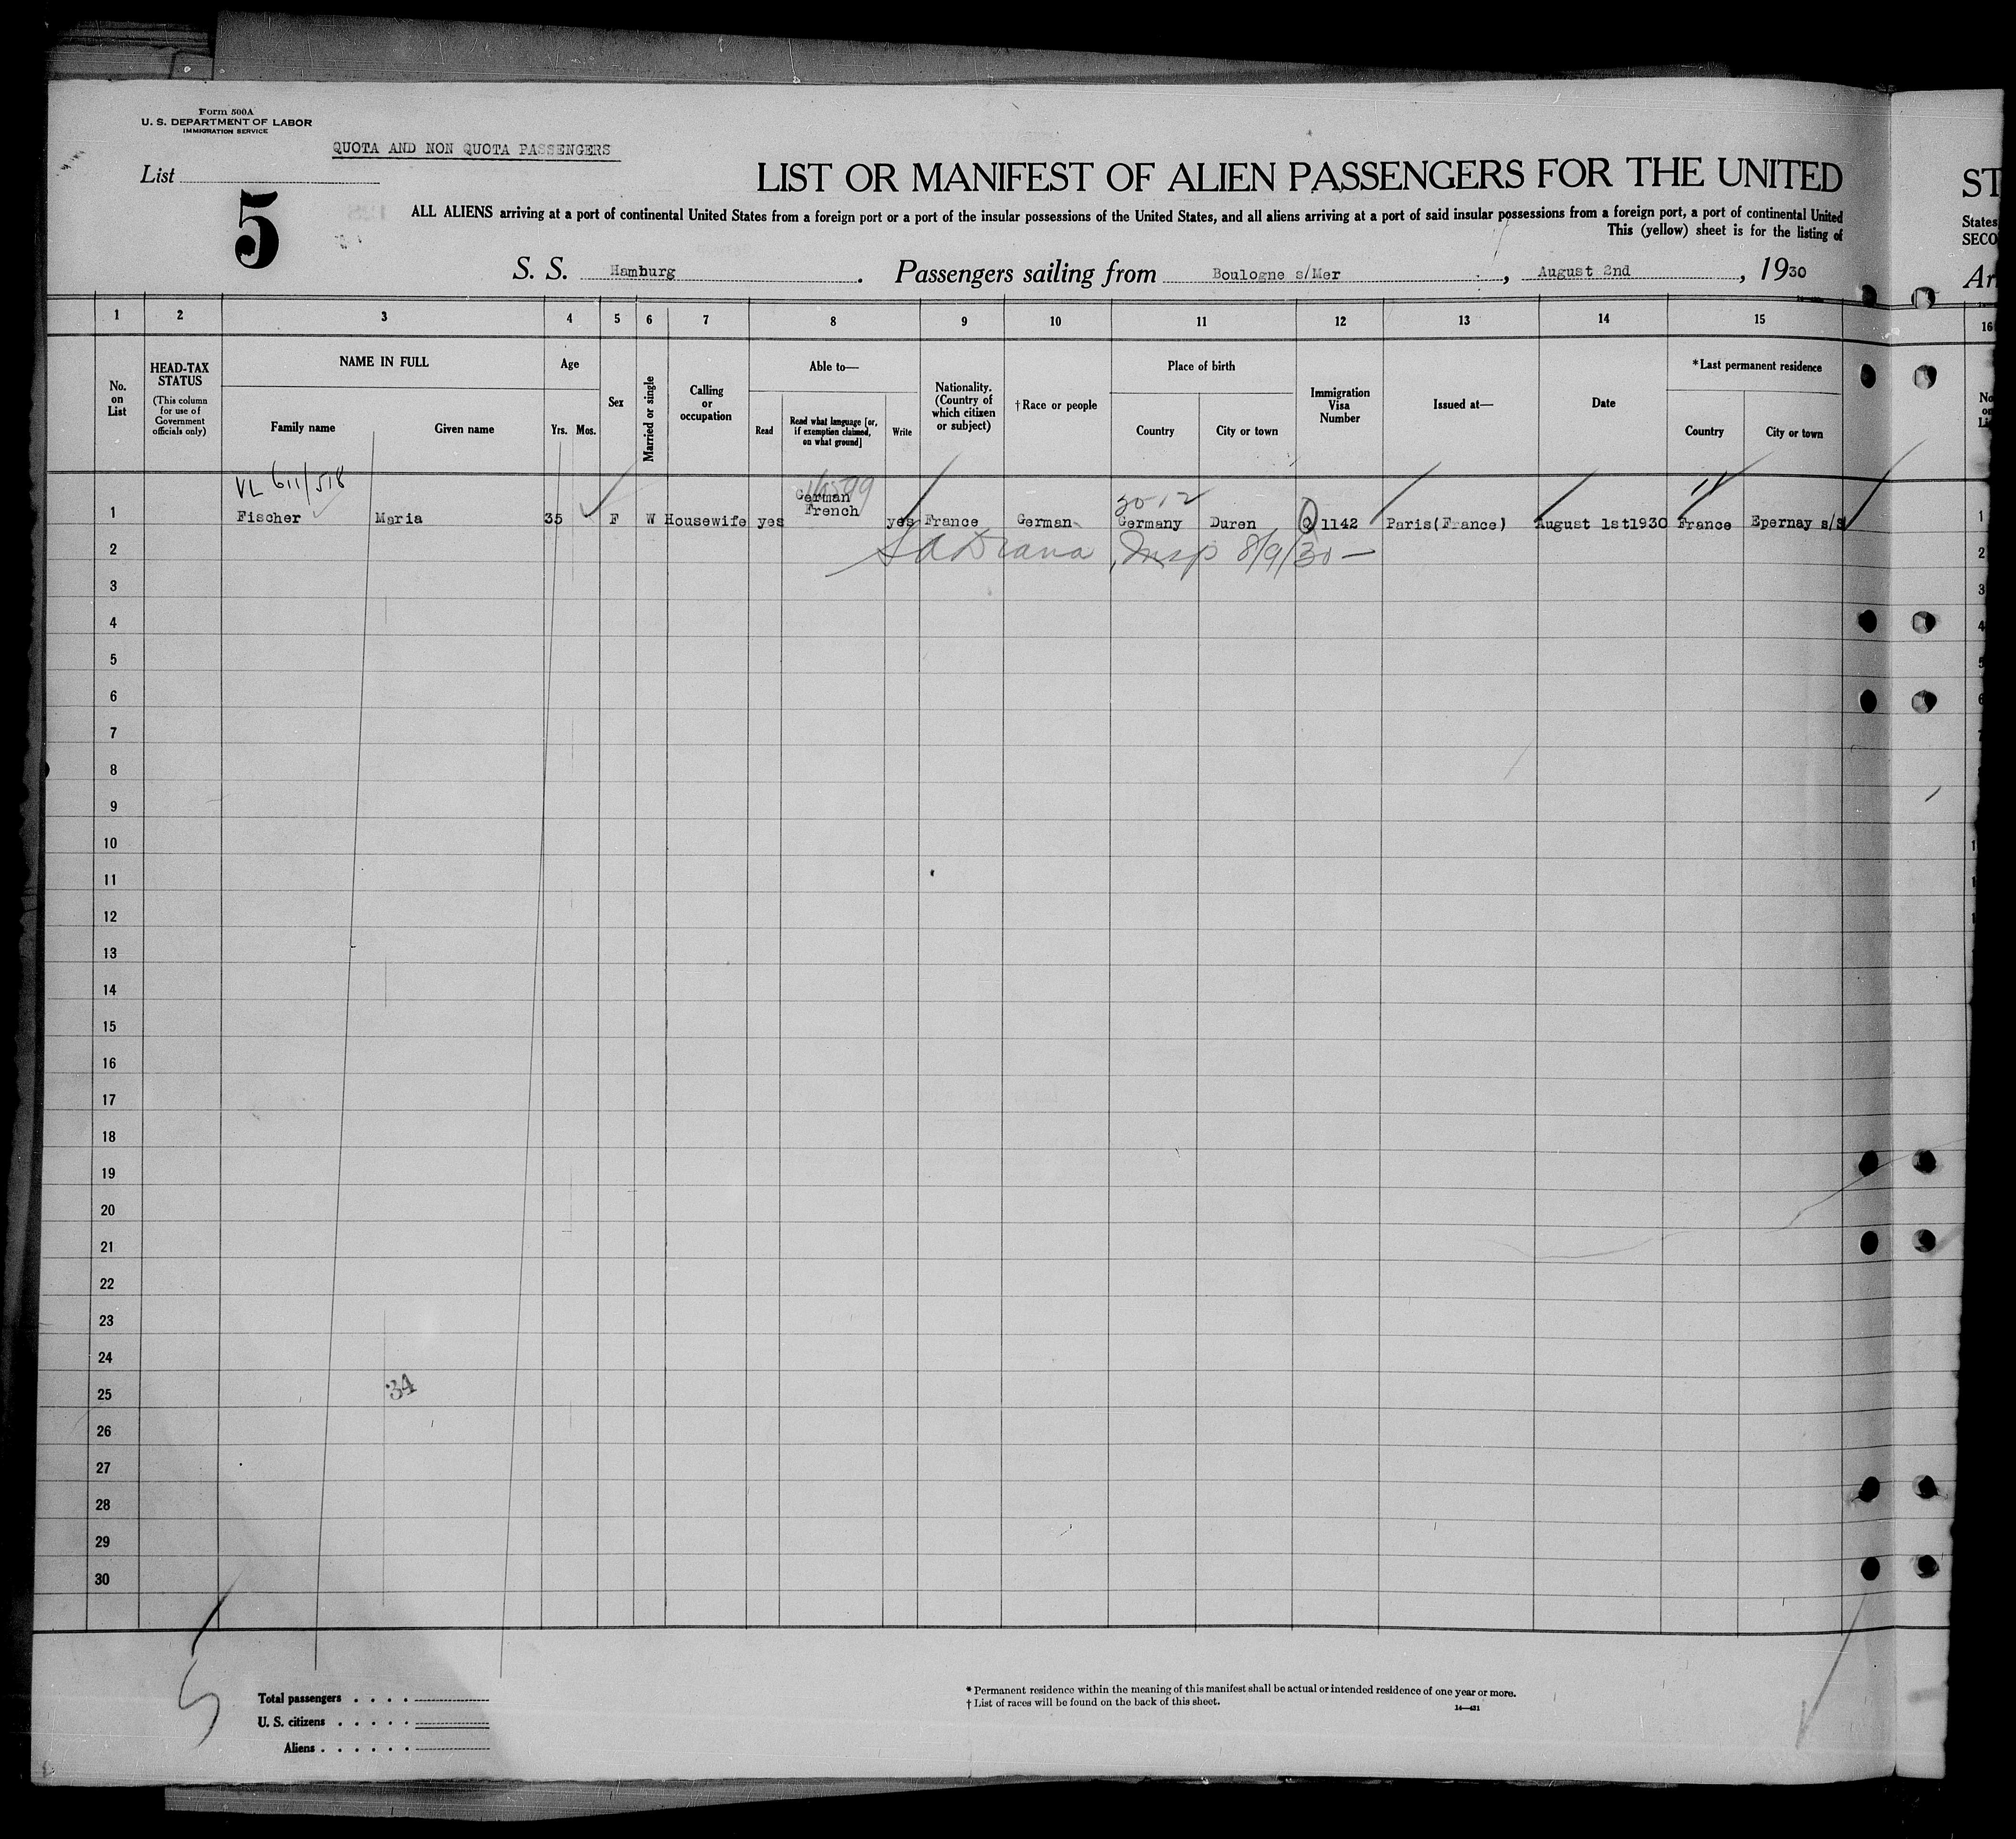 Form 500A
U. S. DEPARTMENT OF LABOR
IMMIGRATION SERVICE
QUOTA AND NON QUOTA PASSENGERS
List
5
LIST OR MANIFEST OF ALIEN PASSENGERS FOR THE UNITED
ST
ALL ALIENS arriving at a port of continental United States from a foreign port or a port of the insular possessions of the United States, and all aliens arriving at a port of said insular possessions from a foreign port, a port of continental United
States
This (yellow) sheet is for the listing of
SECO
S. S. Hamburg. Passengers sailing from Boulogne s/Mer, August 2nd, 1930
1 2 3 4 5 6 7 8 9 10 11 12 13 14 15 16
No. on List
HEAD-TAX STATUS
(This column for use of Government officials only)
NAME IN FULL
Family name
Given name
Age
Yrs. Mos.
Sex
Married or single
Calling or occupation
Able to—
Read
Read what language [or, if exemption claimed, on what ground]
Write
Nationality. (Country of which citizen or subject)
†Race or people
Place of birth
Country
City or town
Immigration Visa Number
Issued at—
Date
*Last permanent residence
Country
City or town
VL 611/518
30-12
1 Fischer Maria 35 F W Housewife yes German French yes France German Germany Duren Q 1142 Paris(France) August 1st1930 France Epernay s/S 1
2 Insp 8/9/30 2
3 3
4 4
5 5
6 6
7
8
9
10
11
12
13
14
15
16
17
18
19
20
21
22
23
24
25 34
26
27
28
29
30
5
Total passengers . . . .
U. S. citizens . . . . .
Aliens . . . . . .
* Permanent residence within the meaning of this manifest shall be actual or intended residence of one year or more.
† List of races will be found on the back of this sheet.
14—431